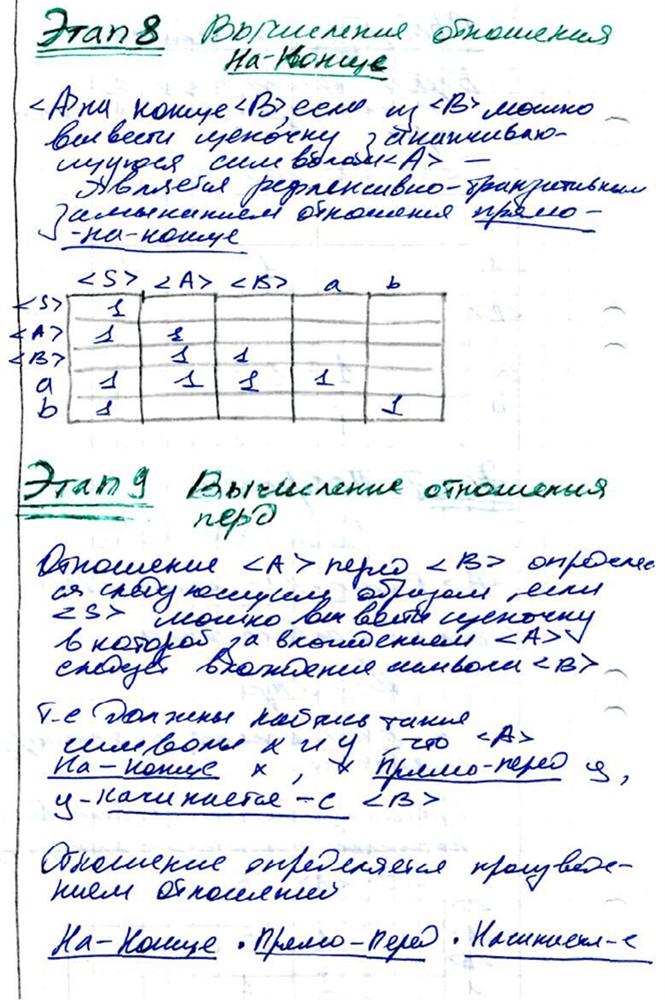 Этап 8 Вычисление отношения
На-Конце
<A> на конце <B>, если из <B> можно
вывести цепочку заканчиваю-
щуюся символом <A> —
Является рефлексивно-транзитивным
замыканием отношения прямо-
-на-конце
<S> <A> <B> a b
<S> 1
<A> 1 1
<B> 1 1
a 1 1 1 1
b 1 1
Этап 9 Вычисление отношения
перд
Отношение <A> перед <B> определяет
ся следующим образом, если
<S> можно вывести цепочку
в которой за вхождением <A>
следует вхождение символа <B>
т-е Должны найтись такие
символы x и y что <A>
На-конце x, x Прямо-перед y,
y-начинается-с <B>
Отношение определяется произведе-
нием отношений
На-Конце · Прямо-Перед ·